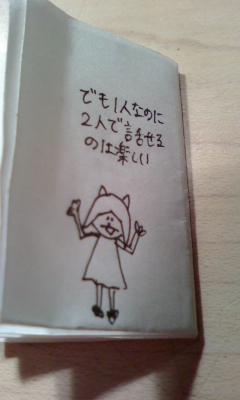 でも1人なのに
2人で話せる
のは楽しい